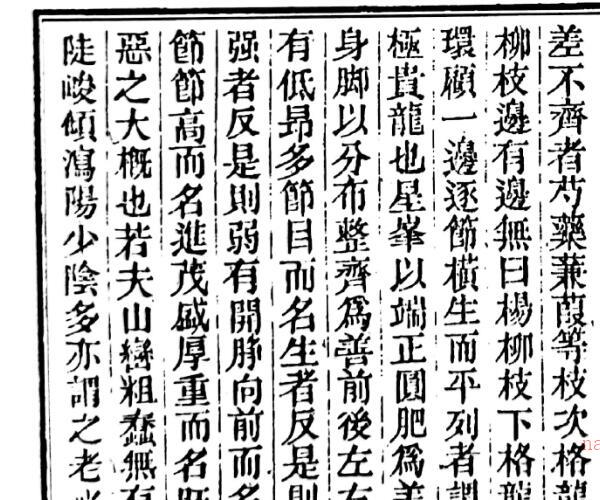 差不齊者芍藥蒹葭等枝次格龍
柳枝邊有邊無曰楊柳枝下格龍
環顧一邊逐節橫生而平列者謂
極貴龍也星峯以端正圓肥爲善
身脚以分布整齊爲善前後左右
有低昂多節目而名生者反是則
强者反是則弱有開脉向前而名
節節高而名進茂盛厚重而名
惡之大槪也若夫山巒粗蠢無有
陡峻傾瀉陽少陰多亦謂之老
na